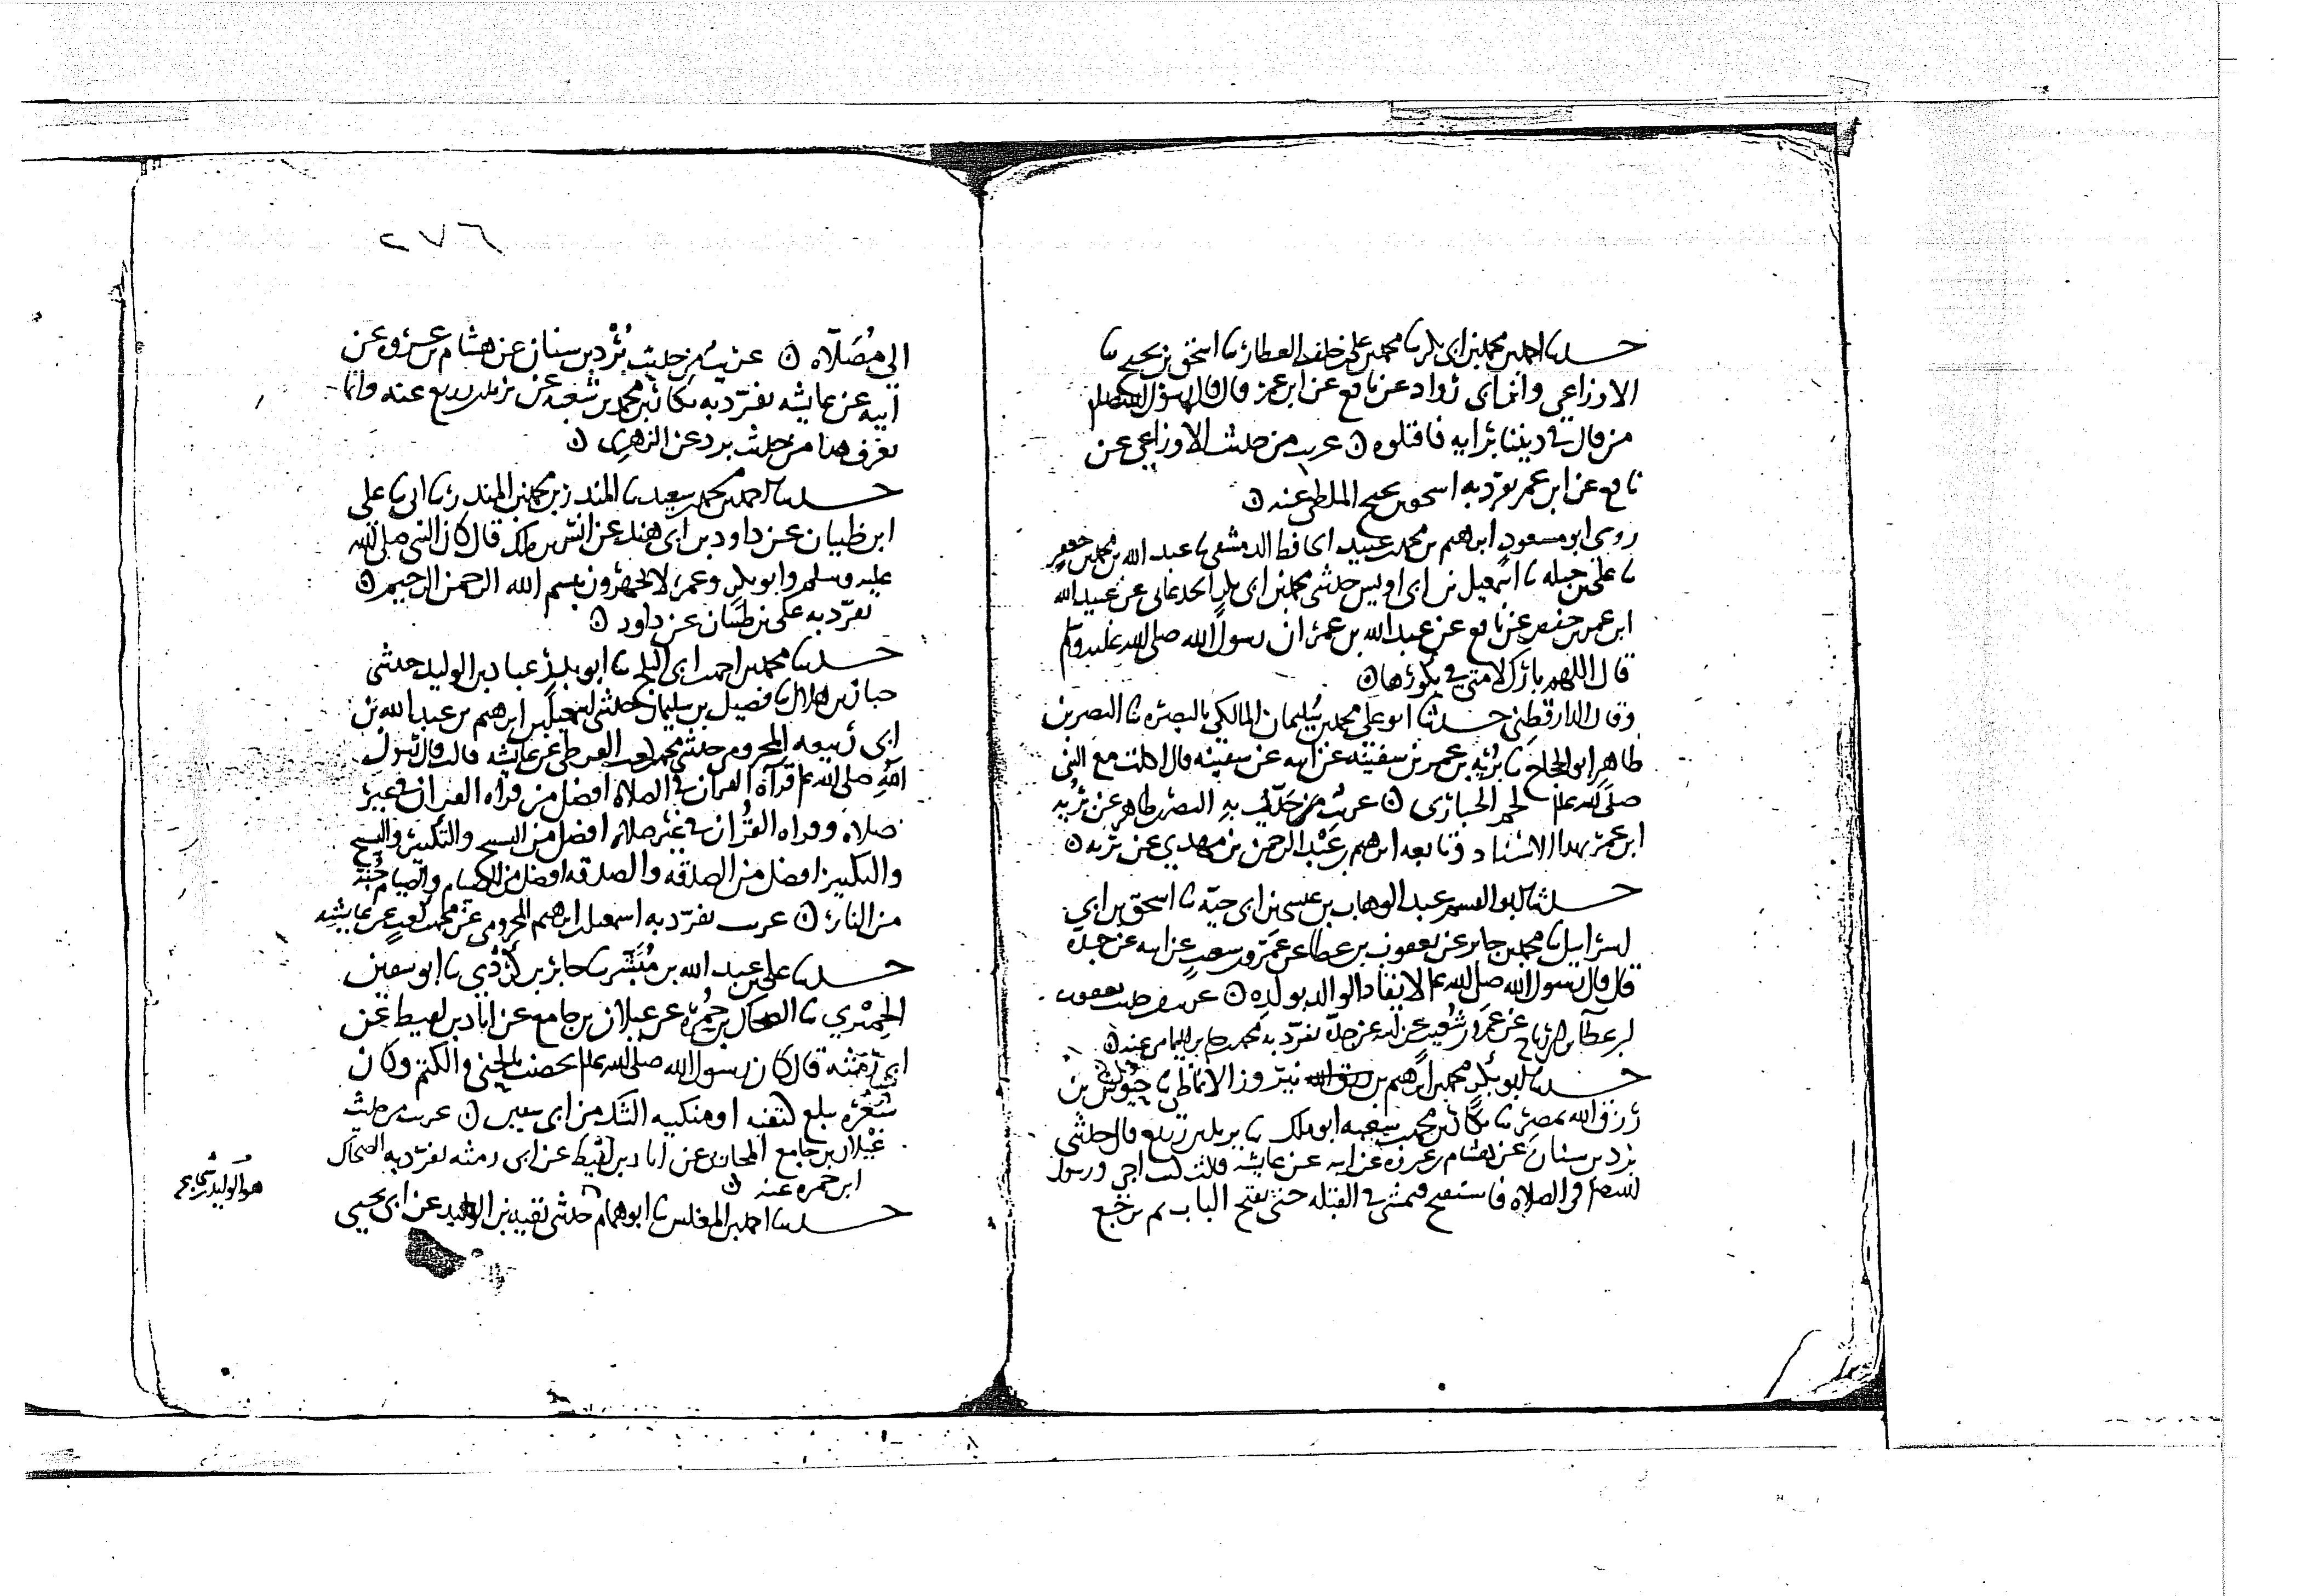 حدثنا احمد بن محمد بن ابي بكر نا محمد بن علي بن خلف العطار نا اسحق بن يحيى نا
الاوزاعي وابن ابي رواد عن نافع عن ابن عمر قال قال رسول الله صلعم
من قال في ديننا برايه فاقتلوه ه غريب من حديث الاوزاعي عن
نافع عن ابن عمر تفرد به اسحق بن يحيح الملطي عنه ه
روى ابو مسعود ابرهيم بن محمد بن عبيد الحافظ الدمشقي نا عبد الله بن محمد بن جعفر
نا علي بن جبله نا اسمعيل بن ابي اويس حدثني محمد بن ابي بكر الجدعاني عن عبيد الله
ابن عمر بن حفص عن نافع عن عبد الله بن عمر ان رسول الله صلى الله عليه وسلم
قال اللهم بارك لامتي في بكورها ه
وقال الدارقطني حدثنا ابو علي محمد بن سليمان المالكي بالبصره نا النضر بن
طاهر ابو الحجاج نا بريه بن عمر بن سفينه عن ابيه عن سفينه قال اكلت مع النبي
صلى الله علم لحم الحبارى ه غريب من حديث به النضر بن طاهر عن بريه
ابن عمر بهذا الاسناد وتابعه ابرهيم بن عبد الرحمن بن مهدي عن بريه ه
حدثنا ابو القسم عبد الوهاب بن عيسى بن ابي حيه نا اسحق بن ابي
اسرايل نا محمد بن جابر عن يعقوب بن عطا عن عمرو بن سعيب عن ابيه عن جده
قال قال رسول الله صلى الله علم لا يقاد الوالد بولده ه غريب من حديث يعقوب
ابن عطا بن ابي رباح عن عمرو بن شعيب عن ابيه عن جده تفرد به محمد بن جابر اليمامي عنه ه
حدثنا ابو بكر محمد بن ابرهيم بن نيروز الانماطي نا حبوش بن
رزق الله بمصر نا بكار بن محمد بن شعبه ابو بكر نا يزيد بن زريع قال حدثني
برد بن سنان عن هشام بن عروه عن ابيه عن عايشه قالت كنت اجي ورسول
الله صلعم في الصلاه فاستفتح فيمشي في القبله حتى يفتح الباب ثم يرجع
٢٧٦
الى مصلاه ه غريب من حديث برد بن سنان عن هشام بن عروه عن
ابيه عن عايشه تفرد به بكار بن محمد بن شعبه عن يزيد بن زريع عنه وانما
يعرف هذا من حديث برد عن الزهري ه
حدثنا احمد بن محمد بن سعيد نا المنذر بن محمد بن المنذر نا ابي نا علي
ابن ظبيان عن داود بن ابي هند عن انس بن ملك قال كان النبي صلى الله
عليه وسلم وابو بكر وعمر لا يجهرون بسم الله الرحمن الرحيم ه
تفرد به علي بن ظبيان عن داود ه
حدثنا محمد بن احمد بن ابي الثلج نا ابو بدر عباد بن الوليد حدثني
حبان بن هلال نا فضيل بن سليمان حدثني اسمعيل بن ابرهيم بن عبد الله بن
ابي ربيعه المخزومي حدثني محمد بن كعب القرظي عن عايشه قالت قال رسول
الله صلى الله علم قرآة القران في الصلاه افضل من قراه القران في غير
صلاه وقراه القران في غير صلاه افضل من التسبيح والتكبير والتسبيح
والتكبير افضل من الصدقه والصدقه افضل من الصيام والصيام جنه
من النار ه غريب تفرد به اسمعيل بن ابرهيم المخزومي عن محمد بن كعب عن عايشه
حدثنا علي بن عبد الله بن مبشر نا جابر بن كردي نا ابو سفين
الحميري نا الضحاك بن حمره عن غيلان بن جامع عن اياد بن لقيط عن
ابي رمثه قال كان رسول الله صلى الله علم يخضب بالحنى والكتم وكان
شعره يبلغ كتفيه او منكبيه الشك من ابي سفين ه غريب من حديث
غيلان بن جامع المحاربي عن اياد بن لقيط عن ابي رمثه تفرد به الضحاك
ابن حمره عنه ه
حدثنا احمد بن المغلس نا ابو همام حدثني بقيه بن الوليد عن ابي يحيى
هو الوليد بن شجاع